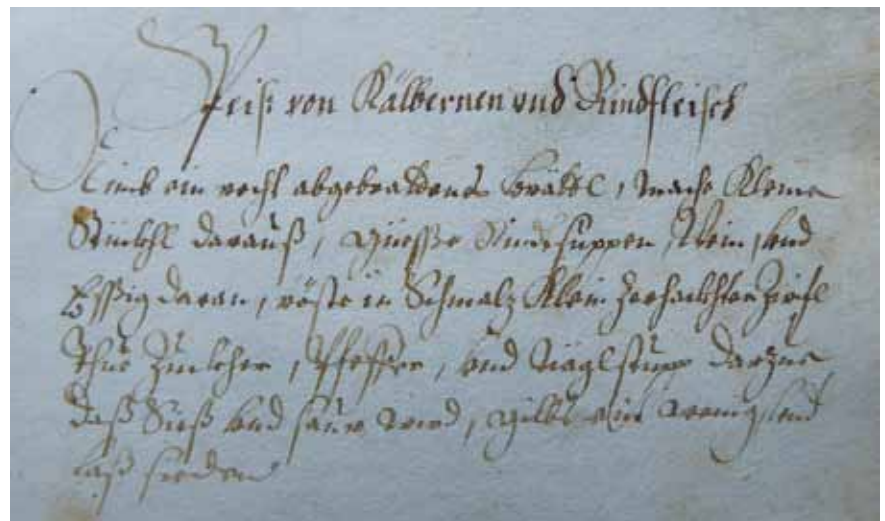 Speiß von Kälbernen vnd Rindfleisch
Nimb ein recht abgebrattens brättl, mache kleine
Stückhl darauß, güesse Rindtsuppen, Wein, vnd
Eßßig daran, röste in Schmalz klein zerhackhten Zwifl
Thue Zuckher, Pfeffer, vnd Nägl stupp darzue
daß Süeß vnd saur wird, gilbs ein wenig, vnd
laß sieden